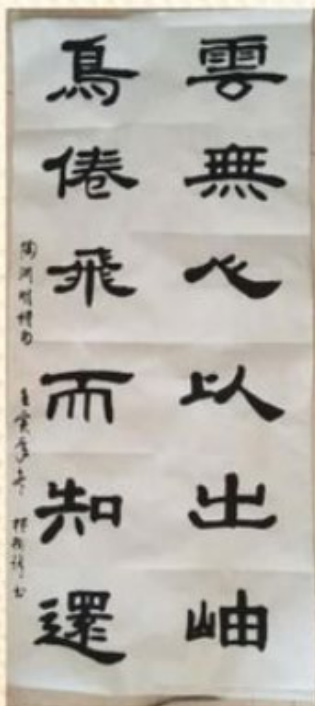 雲無心以出岫
鳥倦飛而知還
陶渊明诗句 壬寅年冬